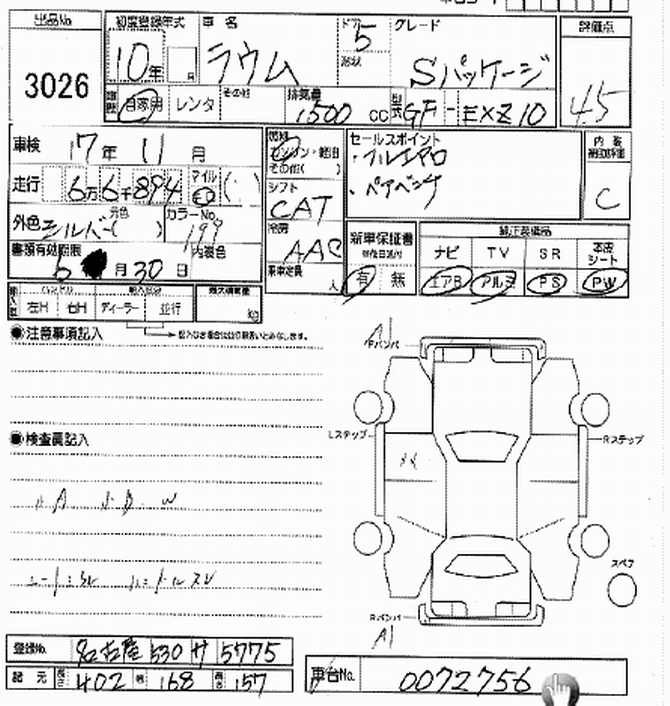 出品No. 初度登録年式 車名 ドア グレード 評価点
3026 10年 月 ラウム 5 形状 Sパッケージ 45
車歴 自家用 レンタ その他 排気量 1500 CC 型式 GF-EXZ10
車検 17年 11月 燃料 ガソリン・軽油 その他( ) セールスポイント 内装
・フルエアロ
・ペアベンチ
C
走行 6万6千894 マイル ( ) シフト CAT
外色 シルバー 元色( ) カラーNo. 199 冷房 AAC
書類有効期限 6月30日 内装色 乗車定員 人
新車保証書 有 無
純正装備品
ナビ TV SR 本皮シート
エアB アルミ PS PW
ハンドル 左H 右H ディーラー 並行 最大積載量 kg
◉注意事項記入
◉検査員記入
A1
Fバンパ
Lステップ Rステップ
スペア
Rバンパ
A1
登録No. 名古屋 530 サ 5775
諸元 長さ 402 幅 168 高さ 157
車台No. 0072756